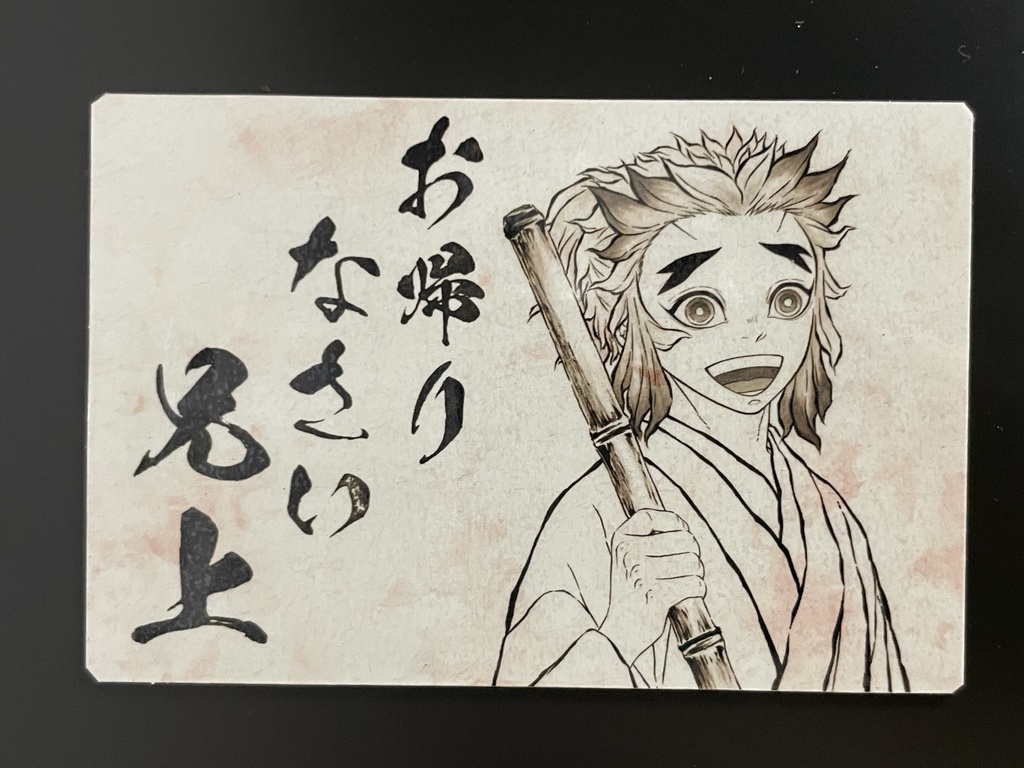 お帰り
なさい
兄上